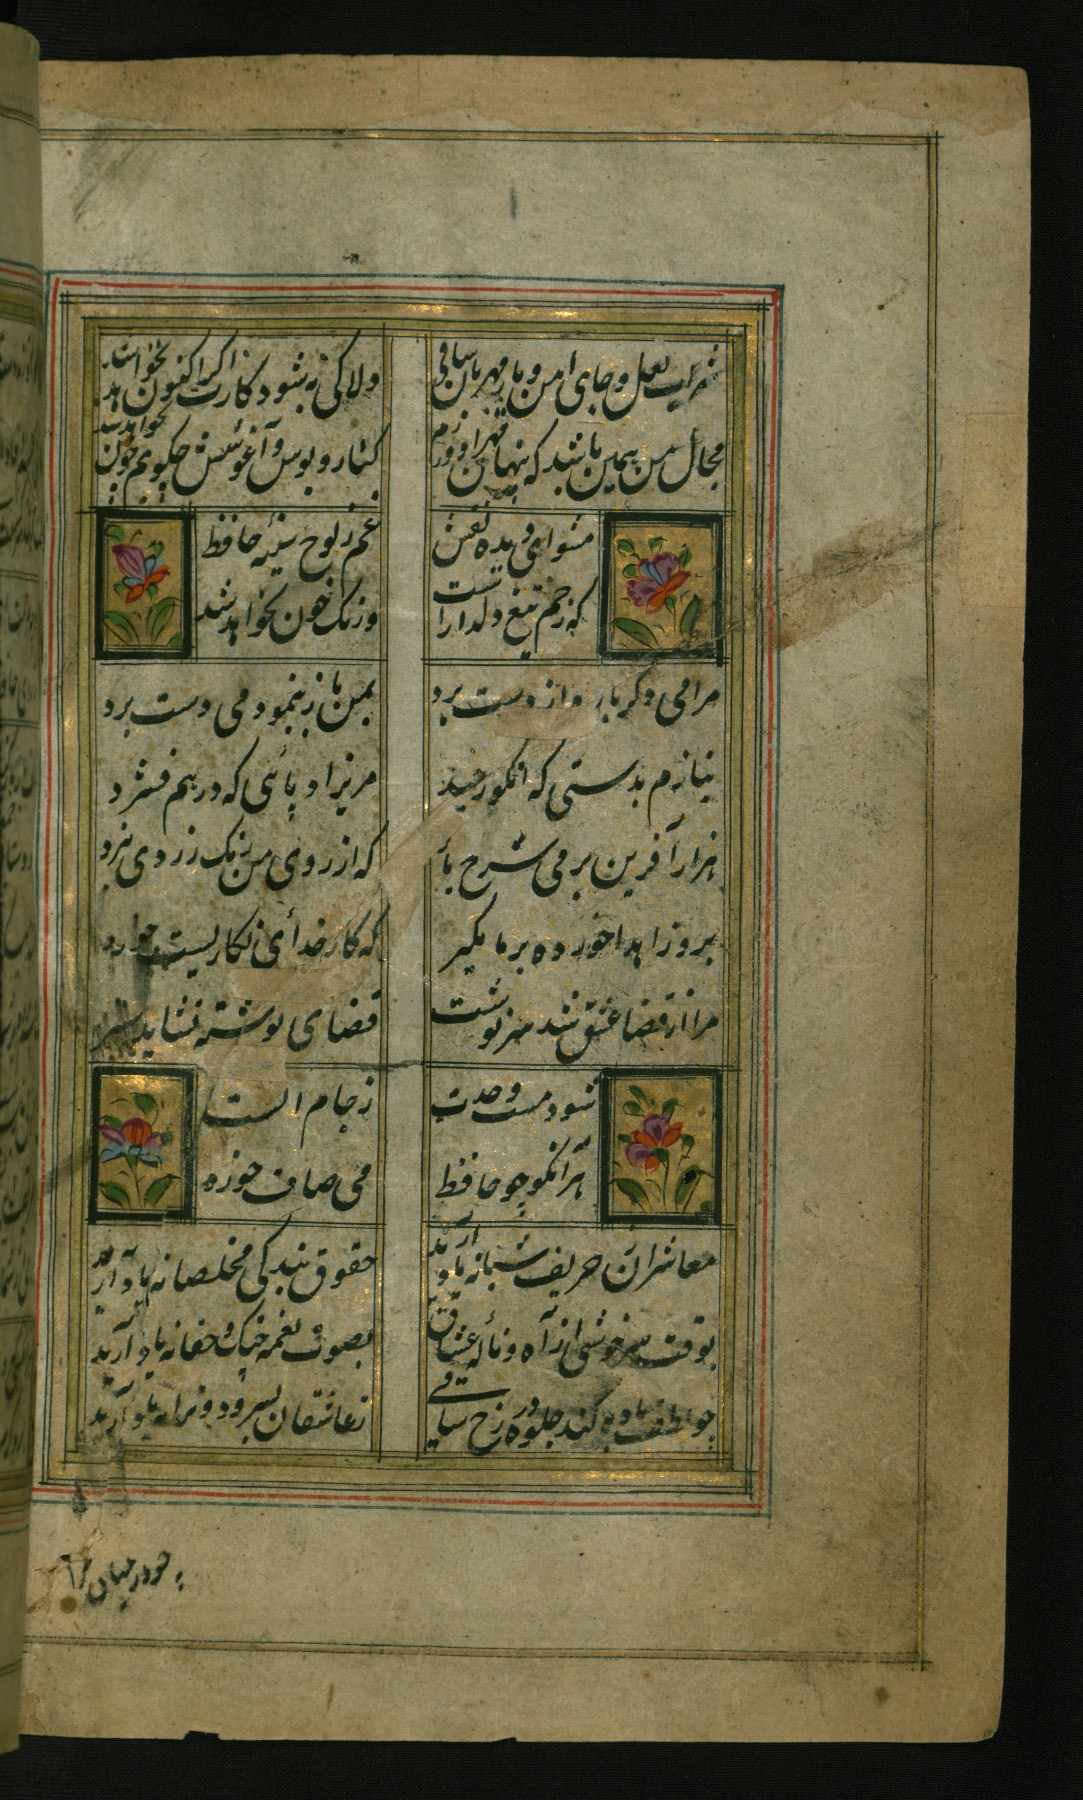 شراب لعل و جای امن و یار مهربان ساقی
دلا کی به شود کارت اگر اکنون نخواهد شد
مجال من همین باشد که پنهان مهر او ورزم
کنار و بوس و آغوشش چکویم چون نخواهد شد
مشوای دیده نقش
غم ز لوح سینه حافظ
که زخم تیغ دلدارا ست
و رنک خون نخواهد شد
مرا می دکر باره از دست برد
بمن باز بنمود می دست برد
بنازم بدستی که انکور چید
مریزاد پائی که در هم فشرد
هزار آفرین بر می سرخ باد
که از روی من رنک زردی ببرد
برو زاهدا خورده بر ما مکیر
که کار خدائی نه کاریست خورد
مرا از قضا عشق شد سرنوشت
قضای نوشته نشاید سترد
شود مست وحدت
ز جام الست
هر آنکو چو حافظ
می صاف خورد
معاشران ز حریف شبانه یاد آرید
حقوق بندکی مخلصانه یاد آرید
بوقت سرخوشی از آه و نالهٔ عشاق
بصوت نغمه چنک و چغانه یاد آرید
چو لطف باده کند جلوه در رخ ساقی
ز عاشقان بسرود و ترانه یاد آرید
چو در میان مراد